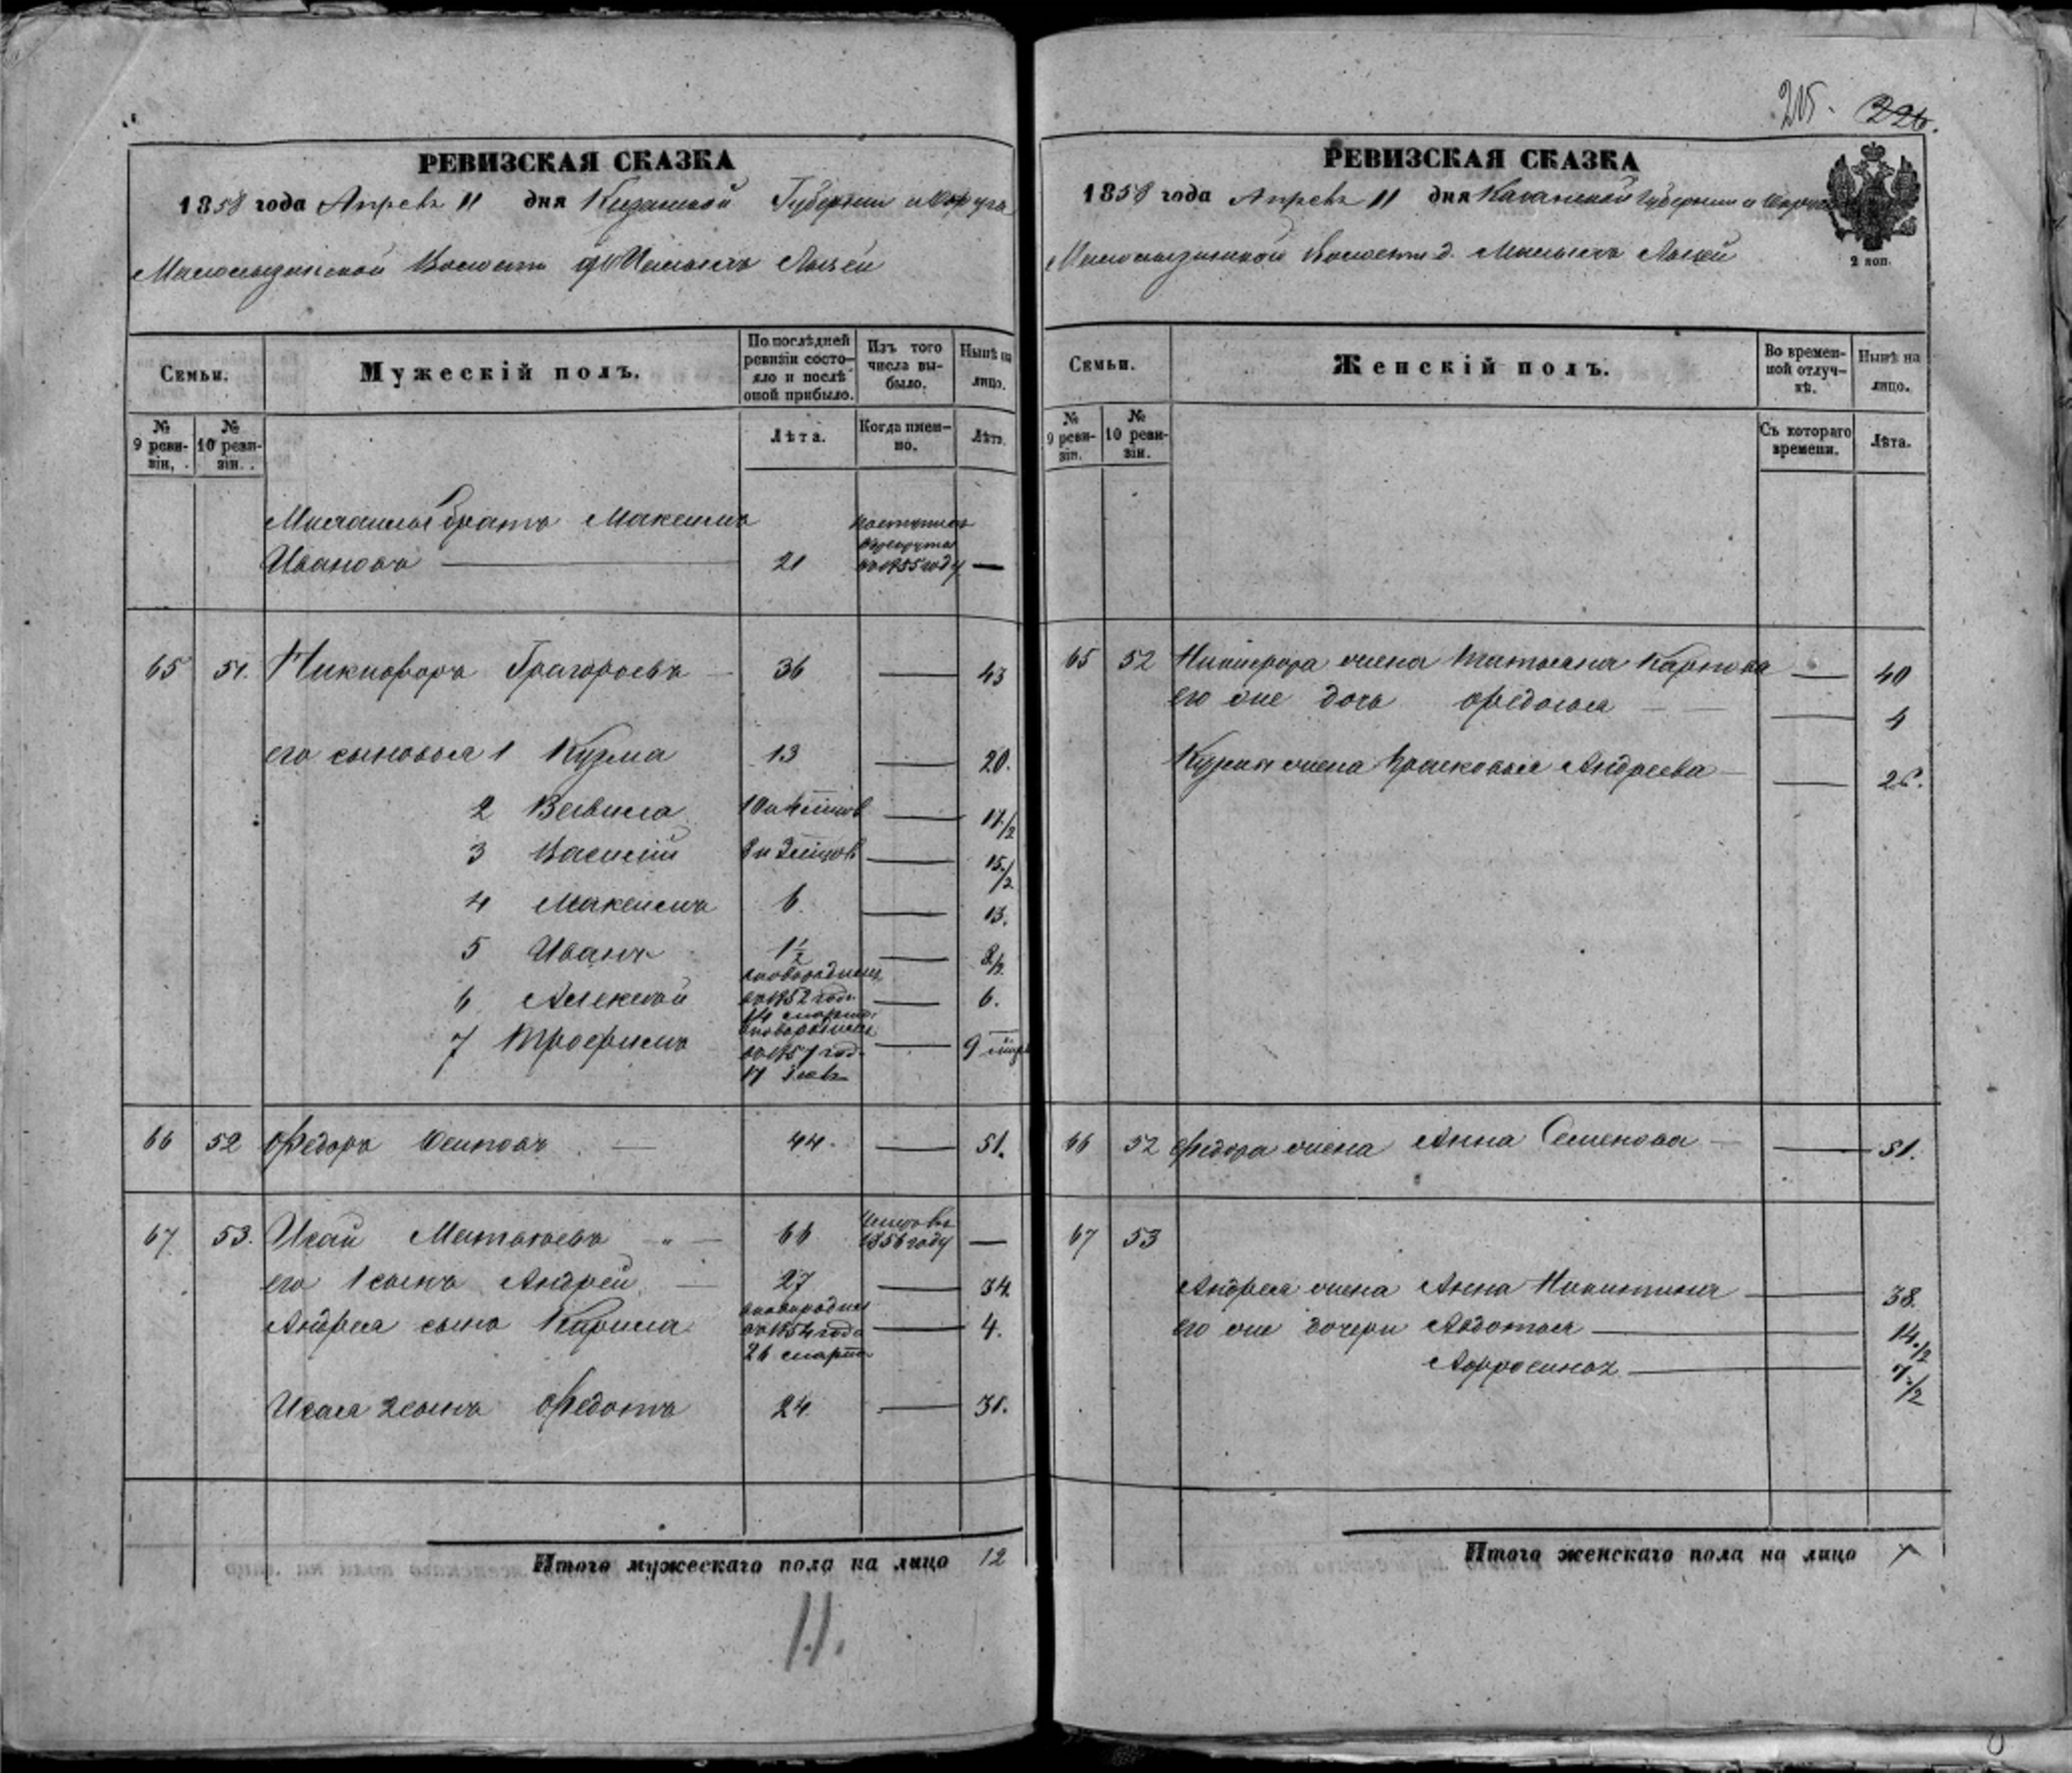 215. 226.
РЕВИЗСКАЯ СКАЗКА
1858 года Апреля 11 дня Казанской Губернии и Округа
Волости
Семьи.
Мужескій полъ.
По послѣдней ревизіи состояло и послѣ оной прибыло.
Изъ того числа выбыло.
Нынѣ на лицо.
№ 9 ревизіи.
№ 10 ревизіи.
Лѣта.
Когда именно.
Лѣта.
братъ Максимъ поступилъ
Ивановъ 21 въ рекруты въ 1855 году —
65 51. Никифоръ Григорьевъ — 36 — 43
его сыновья 1 Кузма 13 — 20.
2 Вавила 10 и — 17 1/2
3 Василій 8 и — 15 1/2
4 Максимъ 6. — 13.
5 Иванъ 1 1/2 — 8 1/2
6 Алексѣй новорожденъ въ 1852 году 14 марта — 6.
7 Трофимъ новорожденъ въ 1857 году 17 — 9
66 52 Федоръ Осиповъ — 44. — 51.
67 53. Исай Матвѣевъ — 66 умеръ 1856 году —
его 1 сынъ Андрей — 27 — 34.
Андрея сынъ Кирила новорожденъ въ 1854 году 26 марта — 4.
Исая 2 сынъ Федотъ 24. — 31.
Итого мужескаго пола на лицо 12
11.
РЕВИЗСКАЯ СКАЗКА
1858 года Апреля 11 дня Казанской Губерніи и Округа
Волости д.
2 коп.
Семьи.
Женскій полъ.
Во временной отлучкѣ.
Нынѣ на лицо.
№ 9 ревизіи.
№ 10 ревизіи.
Съ котораго времени.
Лѣта.
65 52 Никифора жена Татьяна Карпова — 40
его же дочь Федосья — 4
Кузмы жена Прасковья Андреева — 26.
66 52 Федора жена Анна Семенова — 51.
67 53
Андрея жена Анна Никитина — 38.
его же дочери Авдотья — 14 1/2
Афросинья — 7 1/2
Итого женскаго пола на лицо 7